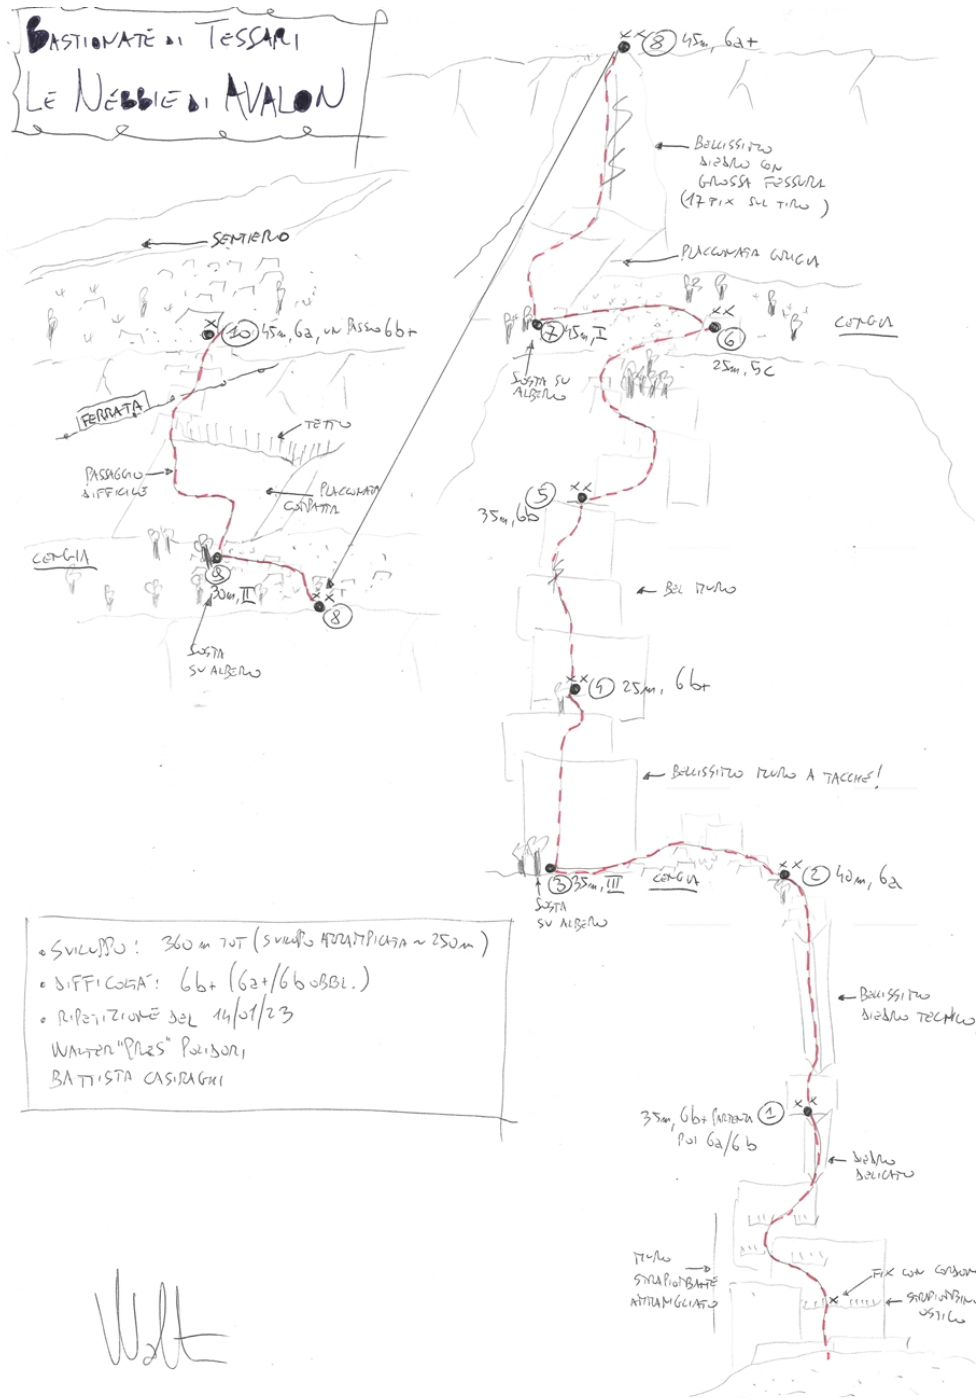 BASTIONATE DI TESSARI
LE NEBBIE DI AVALON
SENTIERO
10 45m, 6a, UN PASSO 6b+
FERRATA
TETTO
PASSAGGIO
DIFFICILE
PLACCONATA
COMPATTA
CENGIA
9
30m, II
8
SOSTA
SU ALBERO
8 45m, 6a+
BELLISSIMO
DIEDRO CON
GROSSA FESSURA
(17 FIX SUL TIRO)
PLACCONATA GRIGIA
7 45m, I
6
25m, 5c
CENGIA
SOSTA SU
ALBERO
5
35m, 6b
BEL MURO
4 25m, 6b+
BELLISSIMO MURO A TACCHE!
3 35m, III
CENGIA
2 40m, 6a
SOSTA
SU ALBERO
BELLISSIMO
DIEDRO TECNICO
35m, 6b+ PARTENZA 1
POI 6a/6b
DIEDRO
DELICATO
MURO
STRAPIOMBANTE
FIX CON CORDON
STRAPIOMBINO
OSTICO
• SVILUPPO: 360 m TOT (SVILUPPO ARRAMPICATA ~ 250m)
• DIFFICOLTÀ: 6b+ (6a+/6b OBBL.)
• RIPETIZIONE DEL 14/01/23
WALTER "PRES" POLIDORI
BATTISTA CASIRAGHI
Walt